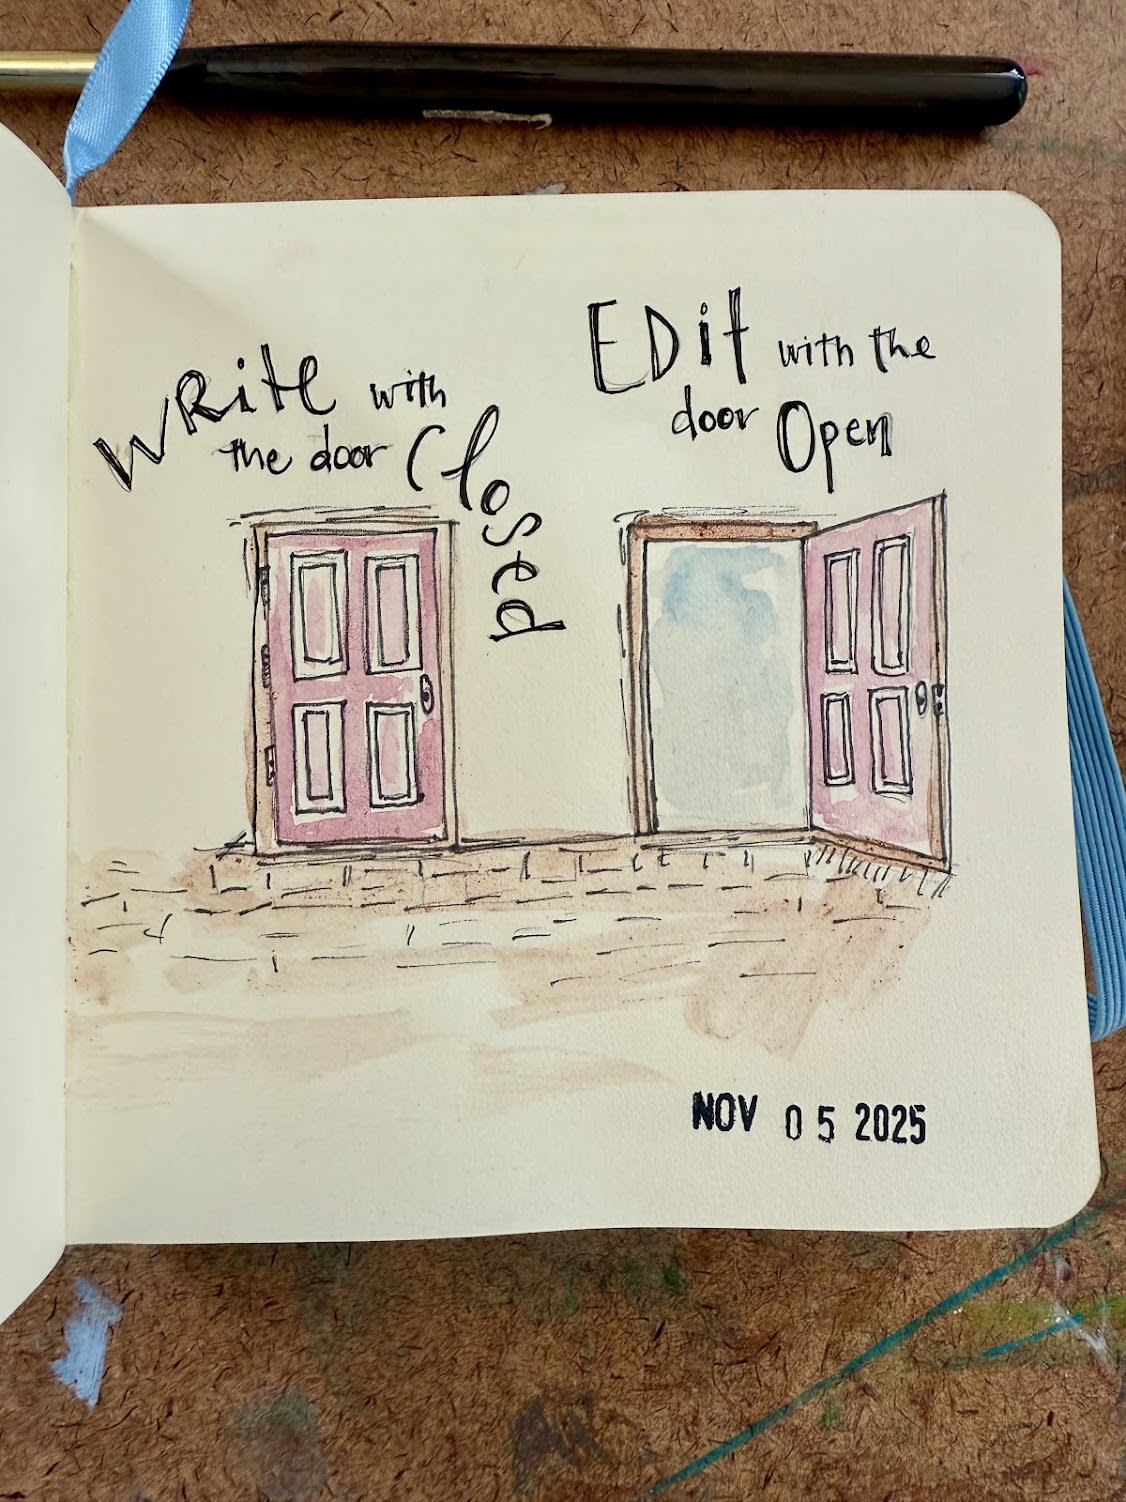 WRite with
the door Closed
EDit with the
door Open
NOV 05 2025